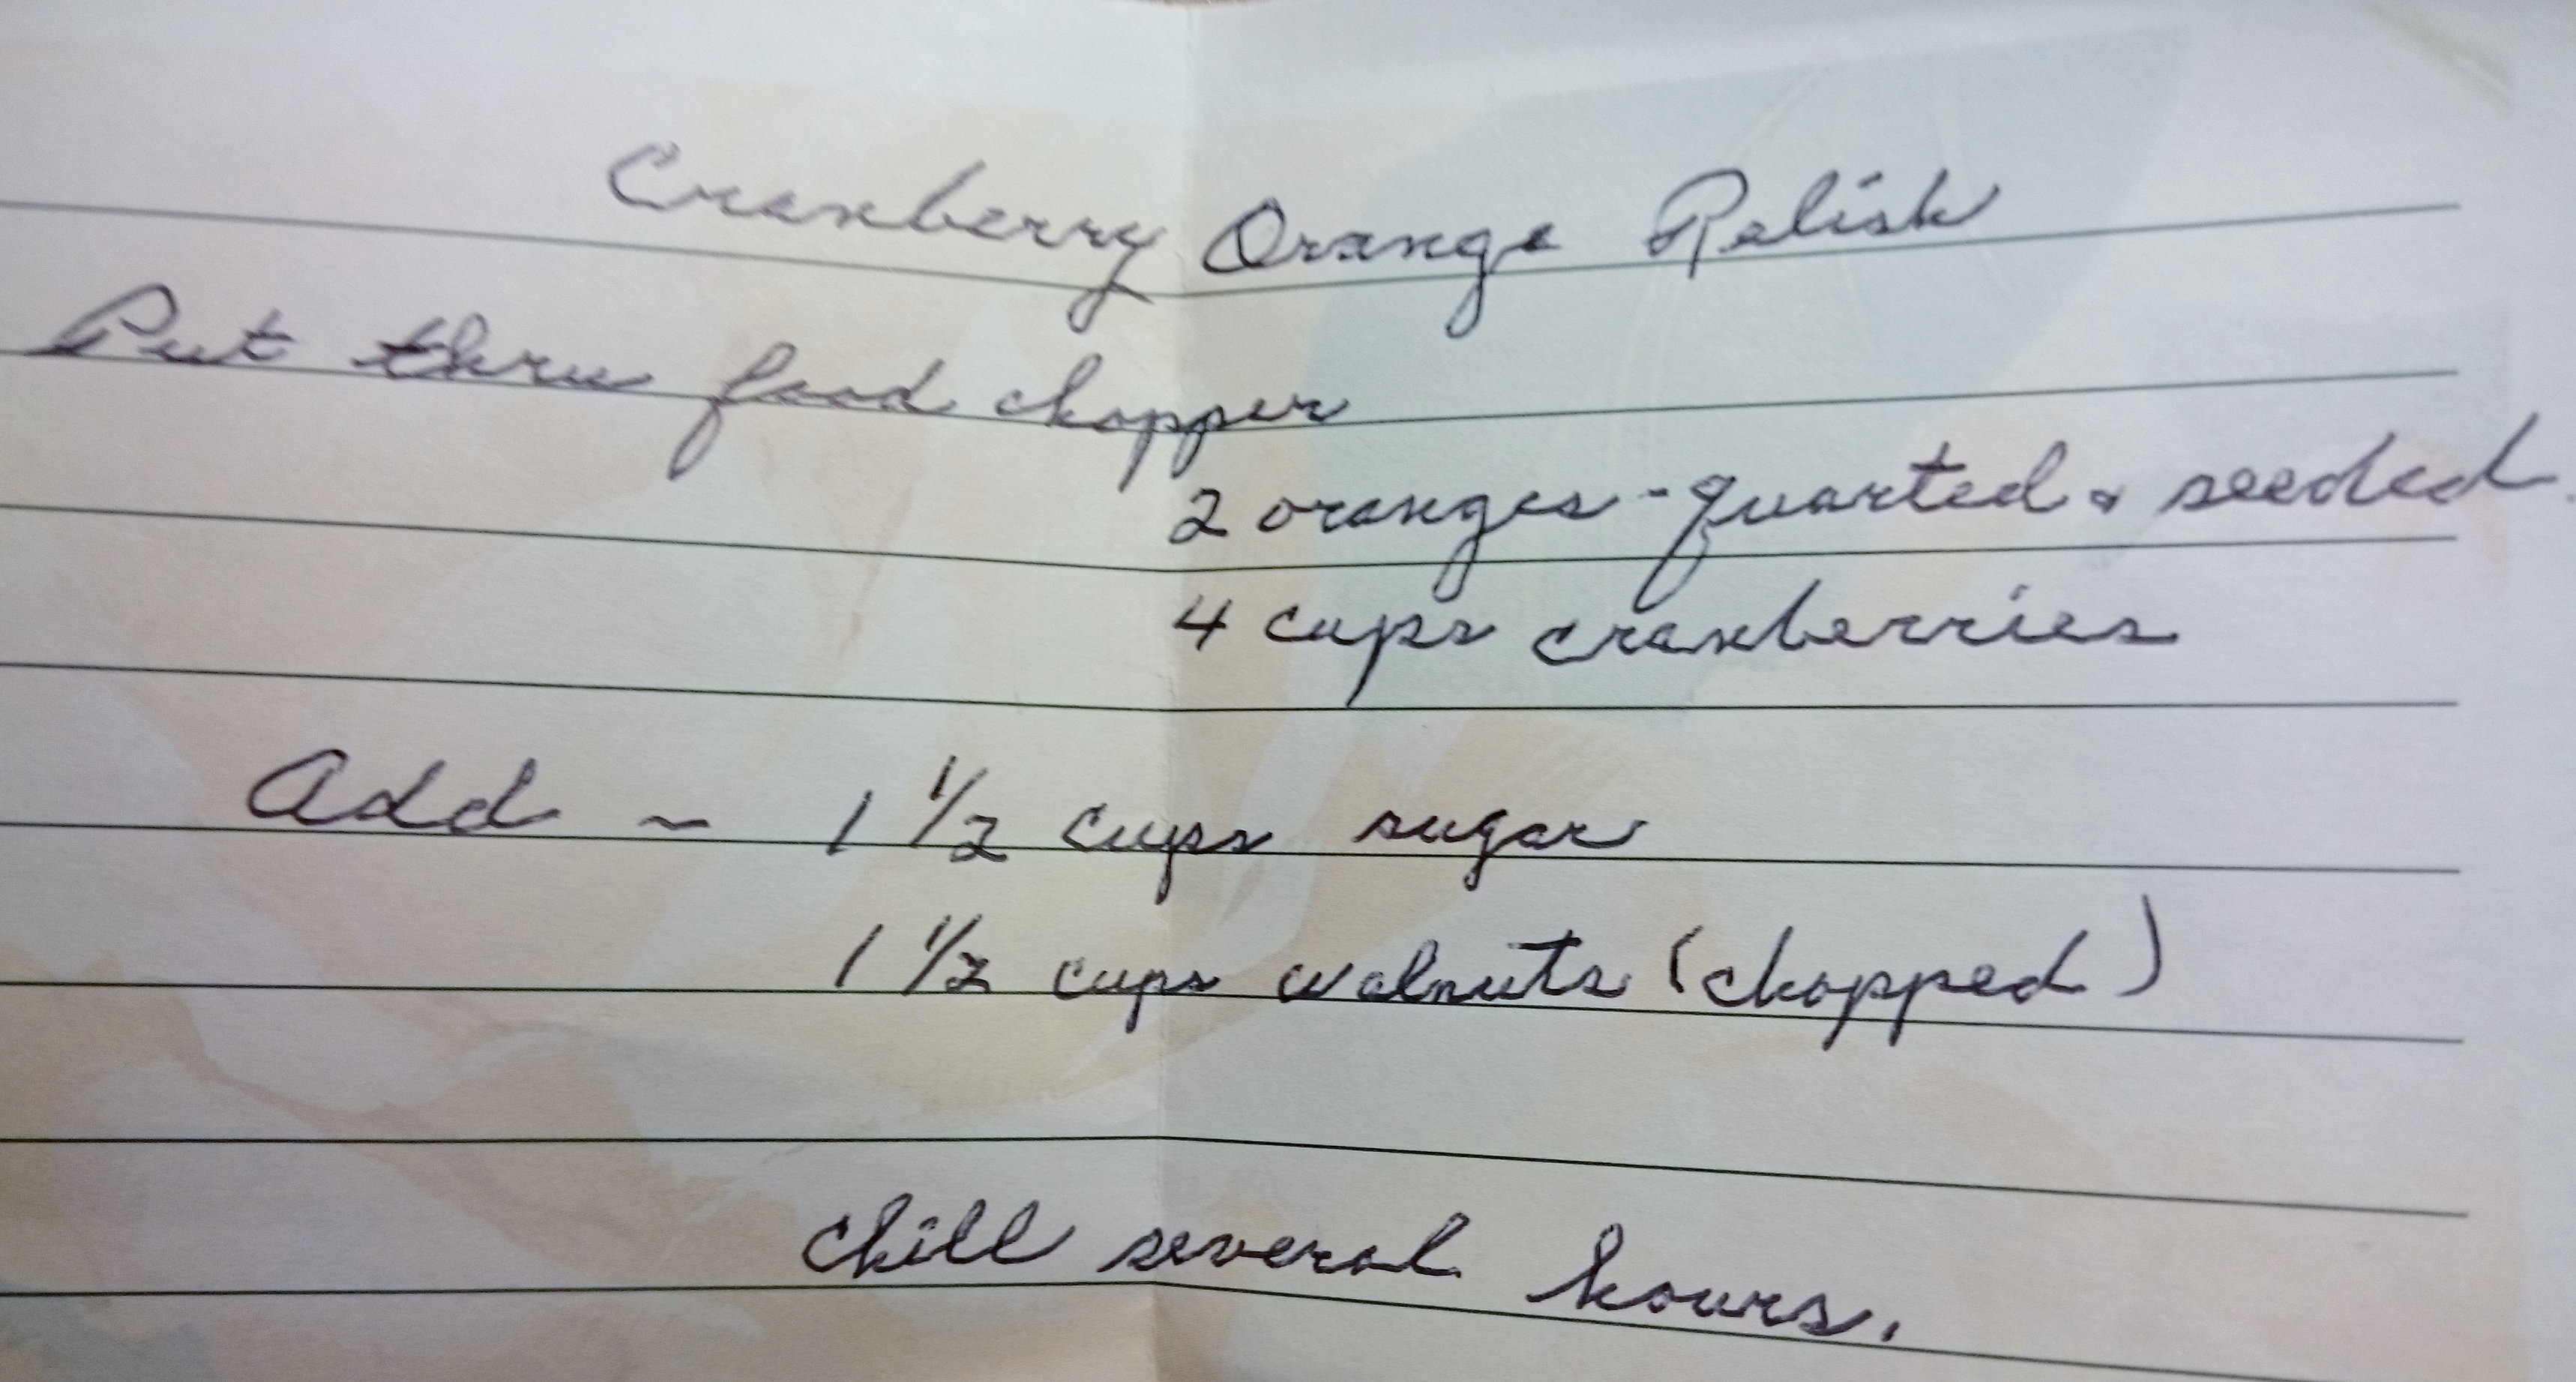 Cranberry Orange Relish
Put thru food chopper
2 oranges - quarted & seeded.
4 cups cranberries
Add ~ 1 1/2 cups sugar
1 1/2 cups walnuts (chopped)
Chill several hours.